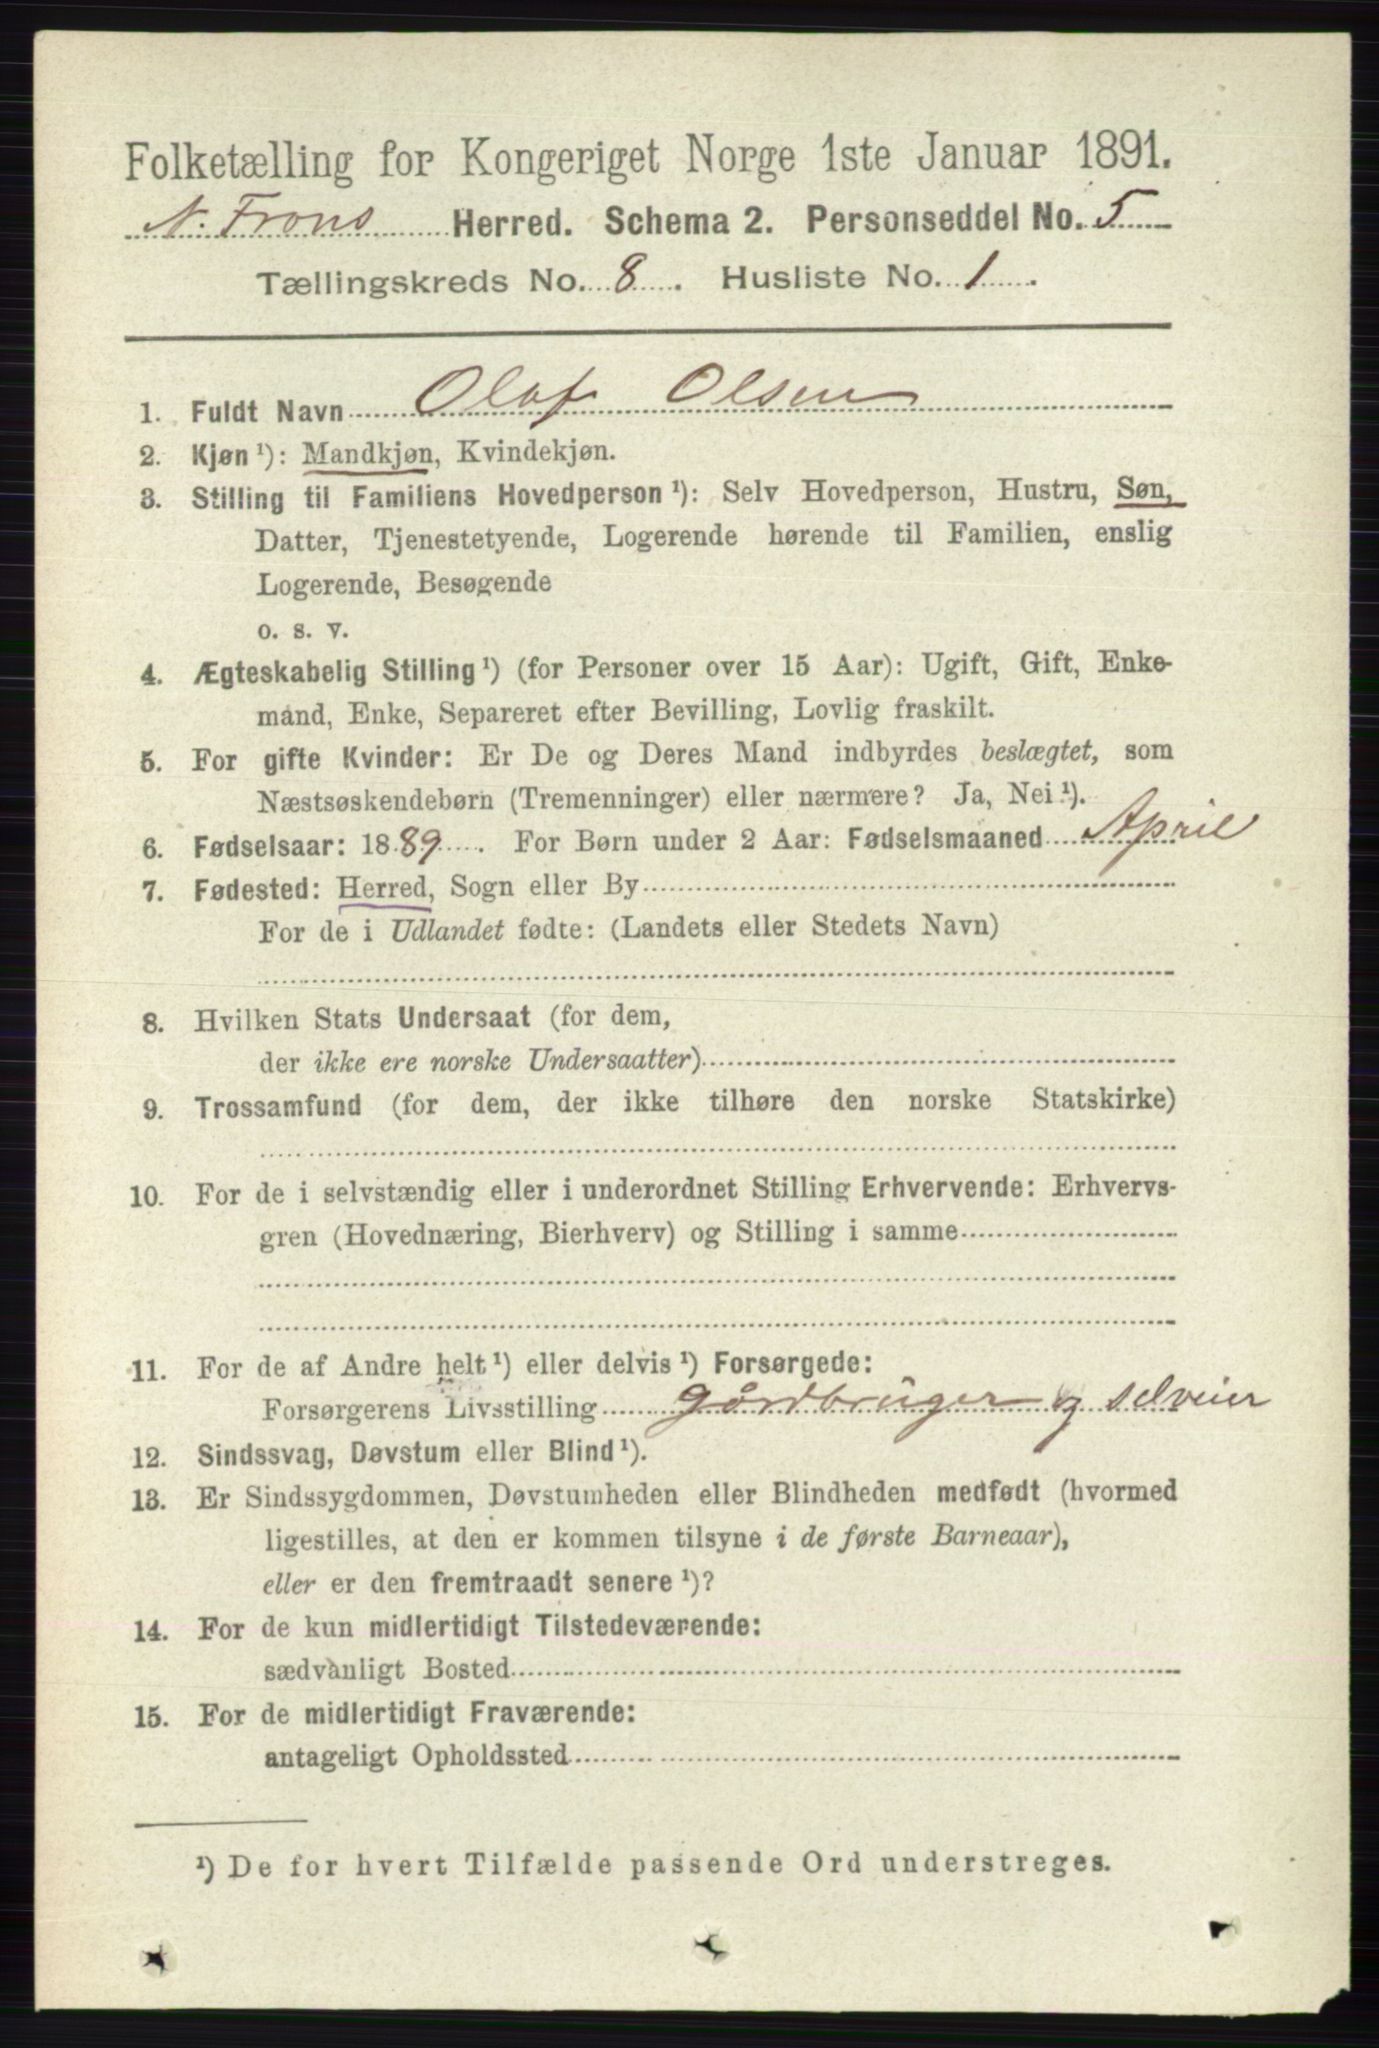 Folketælling for Kongeriget Norge 1ste Januar 1891.
N. Frons Herred. Schema 2. Personseddel No. 5
Tællingskreds No. 8. Husliste No. 1.
1. Fuldt Navn Olaf Olsen
2. Kjøn ¹): Mandkjøn, Kvindekjøn.
3. Stilling til Familiens Hovedperson ¹): Selv Hovedperson, Hustru, Søn,
Datter, Tjenestetyende, Logerende hørende til Familien, enslig
Logerende, Besøgende
o. s. v.
4. Ægteskabelig Stilling ¹) (for Personer over 15 Aar): Ugift, Gift, Enke-
mand, Enke, Separeret efter Bevilling, Lovlig fraskilt.
5. For gifte Kvinder: Er De og Deres Mand indbyrdes beslægtet, som
Næstsøskendebørn (Tremenninger) eller nærmere? Ja, Nei ¹).
6. Fødselsaar: 1889. For Børn under 2 Aar: Fødselsmaaned April
7. Fødested: Herred, Sogn eller By
For de i Udlandet fødte: (Landets eller Stedets Navn)
8. Hvilken Stats Undersaat (for dem,
der ikke ere norske Undersaatter)
9. Trossamfund (for dem, der ikke tilhøre den norske Statskirke)
10. For de i selvstændig eller i underordnet Stilling Erhvervende: Erhvervs-
gren (Hovednæring, Bierhverv) og Stilling i samme
11. For de af Andre helt ¹) eller delvis ¹) Forsørgede:
Forsørgerens Livsstilling gårdbruger og selveier
12. Sindssvag, Døvstum eller Blind ¹).
13. Er Sindssygdommen, Døvstumheden eller Blindheden medfødt (hvormed
ligestilles, at den er kommen tilsyne i de første Barneaar),
eller er den fremtraadt senere ¹)?
14. For de kun midlertidigt Tilstedeværende:
sædvanligt Bosted
15. For de midlertidigt Fraværende:
antageligt Opholdssted
¹) De for hvert Tilfælde passende Ord understreges.